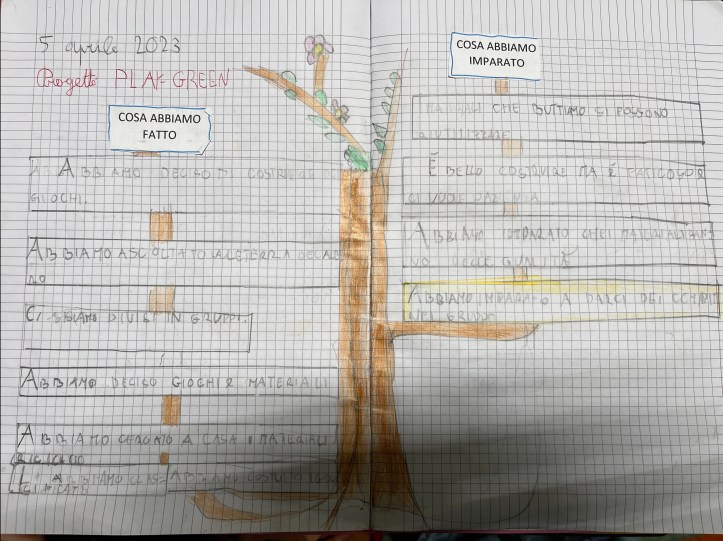 5 aprile 2023
Progetto PLAY GREEN
COSA ABBIAMO
FATTO
ABBIAMO DECISO DI COSTRUIRE
GIOCHI.
ABBIAMO ASCOLTATO LA LETTERA DELL
CI SIAMO DIVISI IN GRUPPI.
ABBIAMO DECISO GIOCHI E MATERIALI
ABBIAMO CERCATO A CASA I MATERIALI
ABBIAMO COSTRUITO
COSA ABBIAMO
IMPARATO
MATERIALI CHE BUTTIAMO SI POSSONO
RIUTILIZZARE
È BELLO COSTRUIRE MA È FATICOSO E
CI VUOLE PAZIENZA
ABBIAMO IMPARATO CHE I MATERIALI HAN
NO DELLE QUALITÀ
ABBIAMO IMPARATO A DARCI DEI COMPITI
NEL GRUPPO